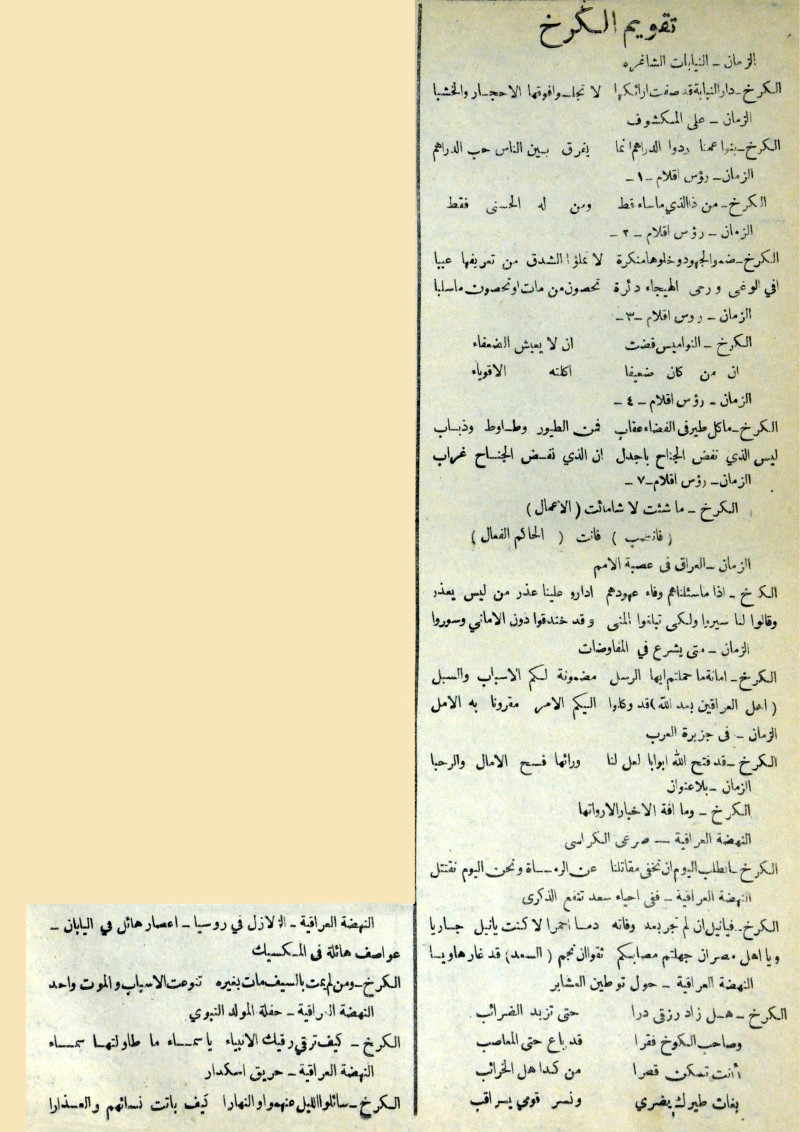 تقويم الكرخ
الزمان ــ النيابات الشاغره
الكرخ ــ دار النيابة قد صفت ارائكها لا تجلسوا فوقها الاحجار والخشبا
الزمان ــ على المكشوف
الكرخ ــ بنوا عمنا ردوا الدراهم انما يفرق بين الناس حب الدراهم
الزمان ــ رؤس اقلام ــ ١ ــ
الكرخ ــ من ذا الذي ماساء قط ومن له الحسنى فقط
الزمان ــ رؤس اقلام ــ ٢ ــ
الكرخ ــ ضموا الجهود وخلوها منكرة لا تملؤا الشدق من تعريفها عجبا
افي الوغى ورحى الهيجاء دئرة تحصون من مات او تحصون ماسلبا
الزمان ــ روس اقلام ــ ٣ ــ
الكرخ ــ النواميس قضت ان لا يعيش الضعفاء
ان من كان ضعيفا اكلته الاقوياء
الزمان ــ رؤس اقلام ــ ٤ ــ
الكرخ ــ ما كل طير فى الفضاء عقاب فمن الطيور وطاوط وذباب
ليس الذي نفض الجناح باجدل ان الذي نفض الجناح غراب
الزمان ــ رؤس اقلام ــ ٧ ــ
الكرخ ــ ما شئت لا شائت ( الاعمال )
( فانصب ) فانت ( الحاكم الفعال )
الزمان ــ العراق فى عصبة الامم
الكرخ ــ اذا ماسئلناهم وفاء عهودهم ادارو علينا عذر من ليس يعذر
وقالوا لنا سيروا ولكى تبلغوا المنى وقد خندقوا دون الاماني وسوروا
الزمان ــ متى يشرع في المفاوضات
الكرخ ــ امانة ما حملتم ايها الرسل مضمونة لكم الاسباب والسبل
( اهل العراقين بعد الله ) قد وكلوا اليكم الامر مقرونا به الامل
الزمان ــ فى جزيرة العرب
الكرخ ــ قد فتح الله ابوابا لعل لنا ورائها فسح الامال والرحبا
الزمان ــ بلا عنوان
الكرخ ــ وما افة الاخبار الا رواتها
النهضة العراقية ــ صرعى الكراسى
الكرخ ــ انطلب اليوم ان تخفى مقاتلنا عن الرماة ونحن اليوم نقتتل
النهضة العراقية ــ ففى احياء سعد تنفع الذكرى
الكرخ ــ فيانيل ان لم تجر بعد وفاته دما احمرا لا كنت يانيل جاريا
ويا اهل مصر ان جهلتم مصابكم ثقوا ان نجم ( السعد ) قد غار هاويا
النهضة العراقية ــ حول توطين العشاير
الكرخ ــ هل زاد رزقى درا حتى تزيد الضرائب
وصاحب الكوخ فقرا قد باع حتى المعاصب
أنت تسكن قصرا من كد اهل الخرائب
بغاث طيرك يضرى ونسر قومي يسراقب
النهضة العراقية ــ الزلازل في روسيا ــ اعصار هائل في اليابان ــ
عواصف هائلة فى المكسيك
الكرخ ــ ومن لم يمت بالسيف مات بغيره تنوعت الاسباب والموت واحد
النهضة العراقية ــ حفلة المولد النبوي
الكرخ ــ كيف ترقى رقيك الانبياء يا سماء ما طاولتها سماء
النهضة العراقية ــ حريق اسكدار
الكرخ ــ سائلوا الليل عنهموا والنهارا كيف باتت نسائهم والعذارا